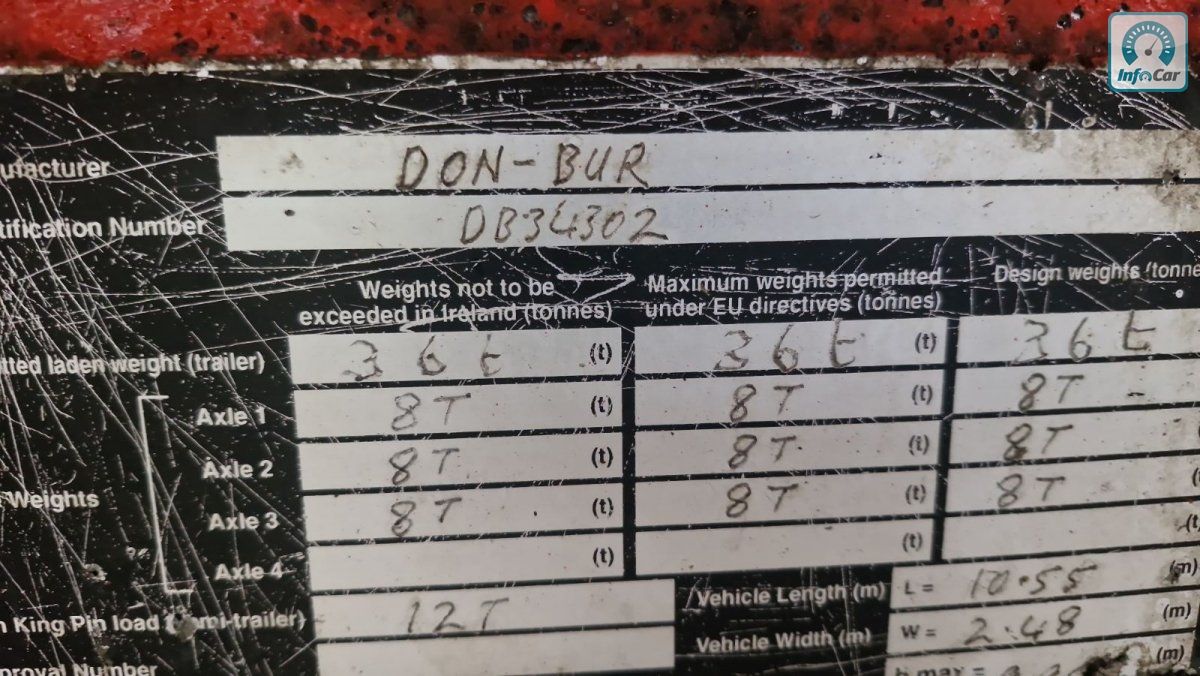 InfoCar
ufacturer DON-BUR
tification Number DB34302
Weights not to be exceeded in Ireland (tonnes)
Maximum weights permitted under EU directives (tonnes)
Design weights (tonne
tted laden weight (trailer) 36t (t) 36t (t) 36t
Axle 1 8T (t) 8T (t) 8T
Axle 2 8T (t) 8T (t) 8T
Weights
Axle 3 8T (t) 8T (t) 8T
Axle 4 (t) (t) (t
King Pin load mi-trailer) 12T
Vehicle Length (m) L = 10.55 (m)
Vehicle Width (m) W = 2.48 (m)
proval Number
h max = (m)